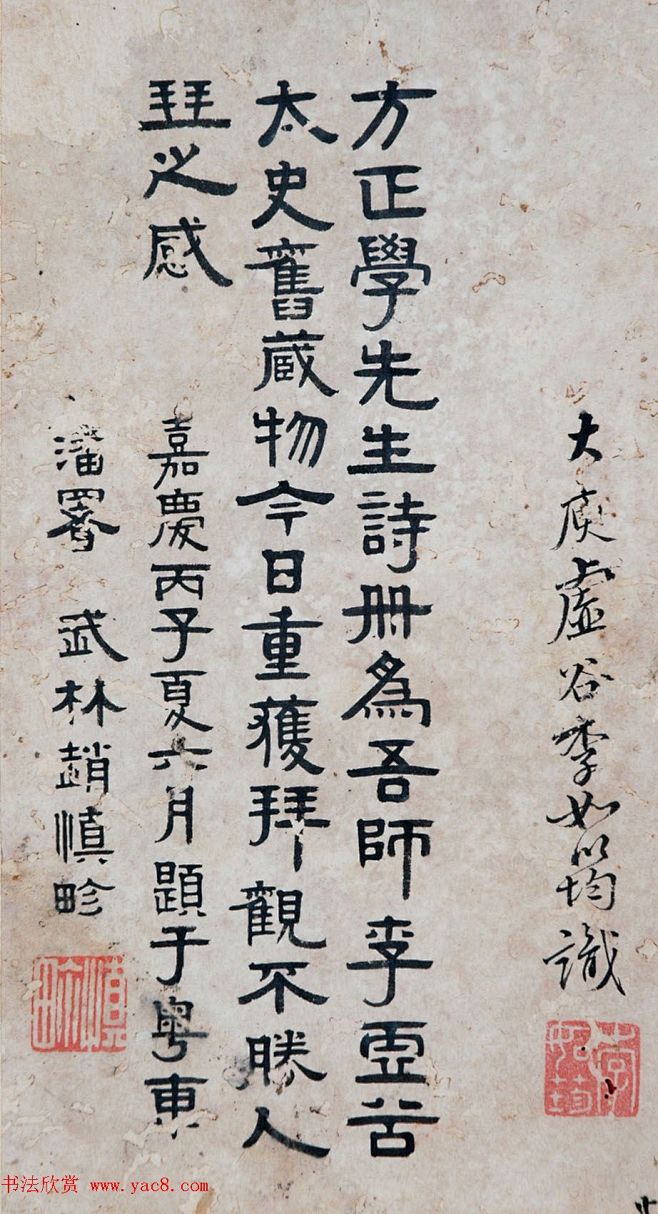 大庾虛谷李如筠識
方正學先生詩冊為吾師李虛谷
太史舊蔵物今日重獲拜觀不勝人
琴之感
嘉慶丙子夏六月題于粵東
潘署 武林趙慎畛
慎畛
书法欣赏 www.yac8.com